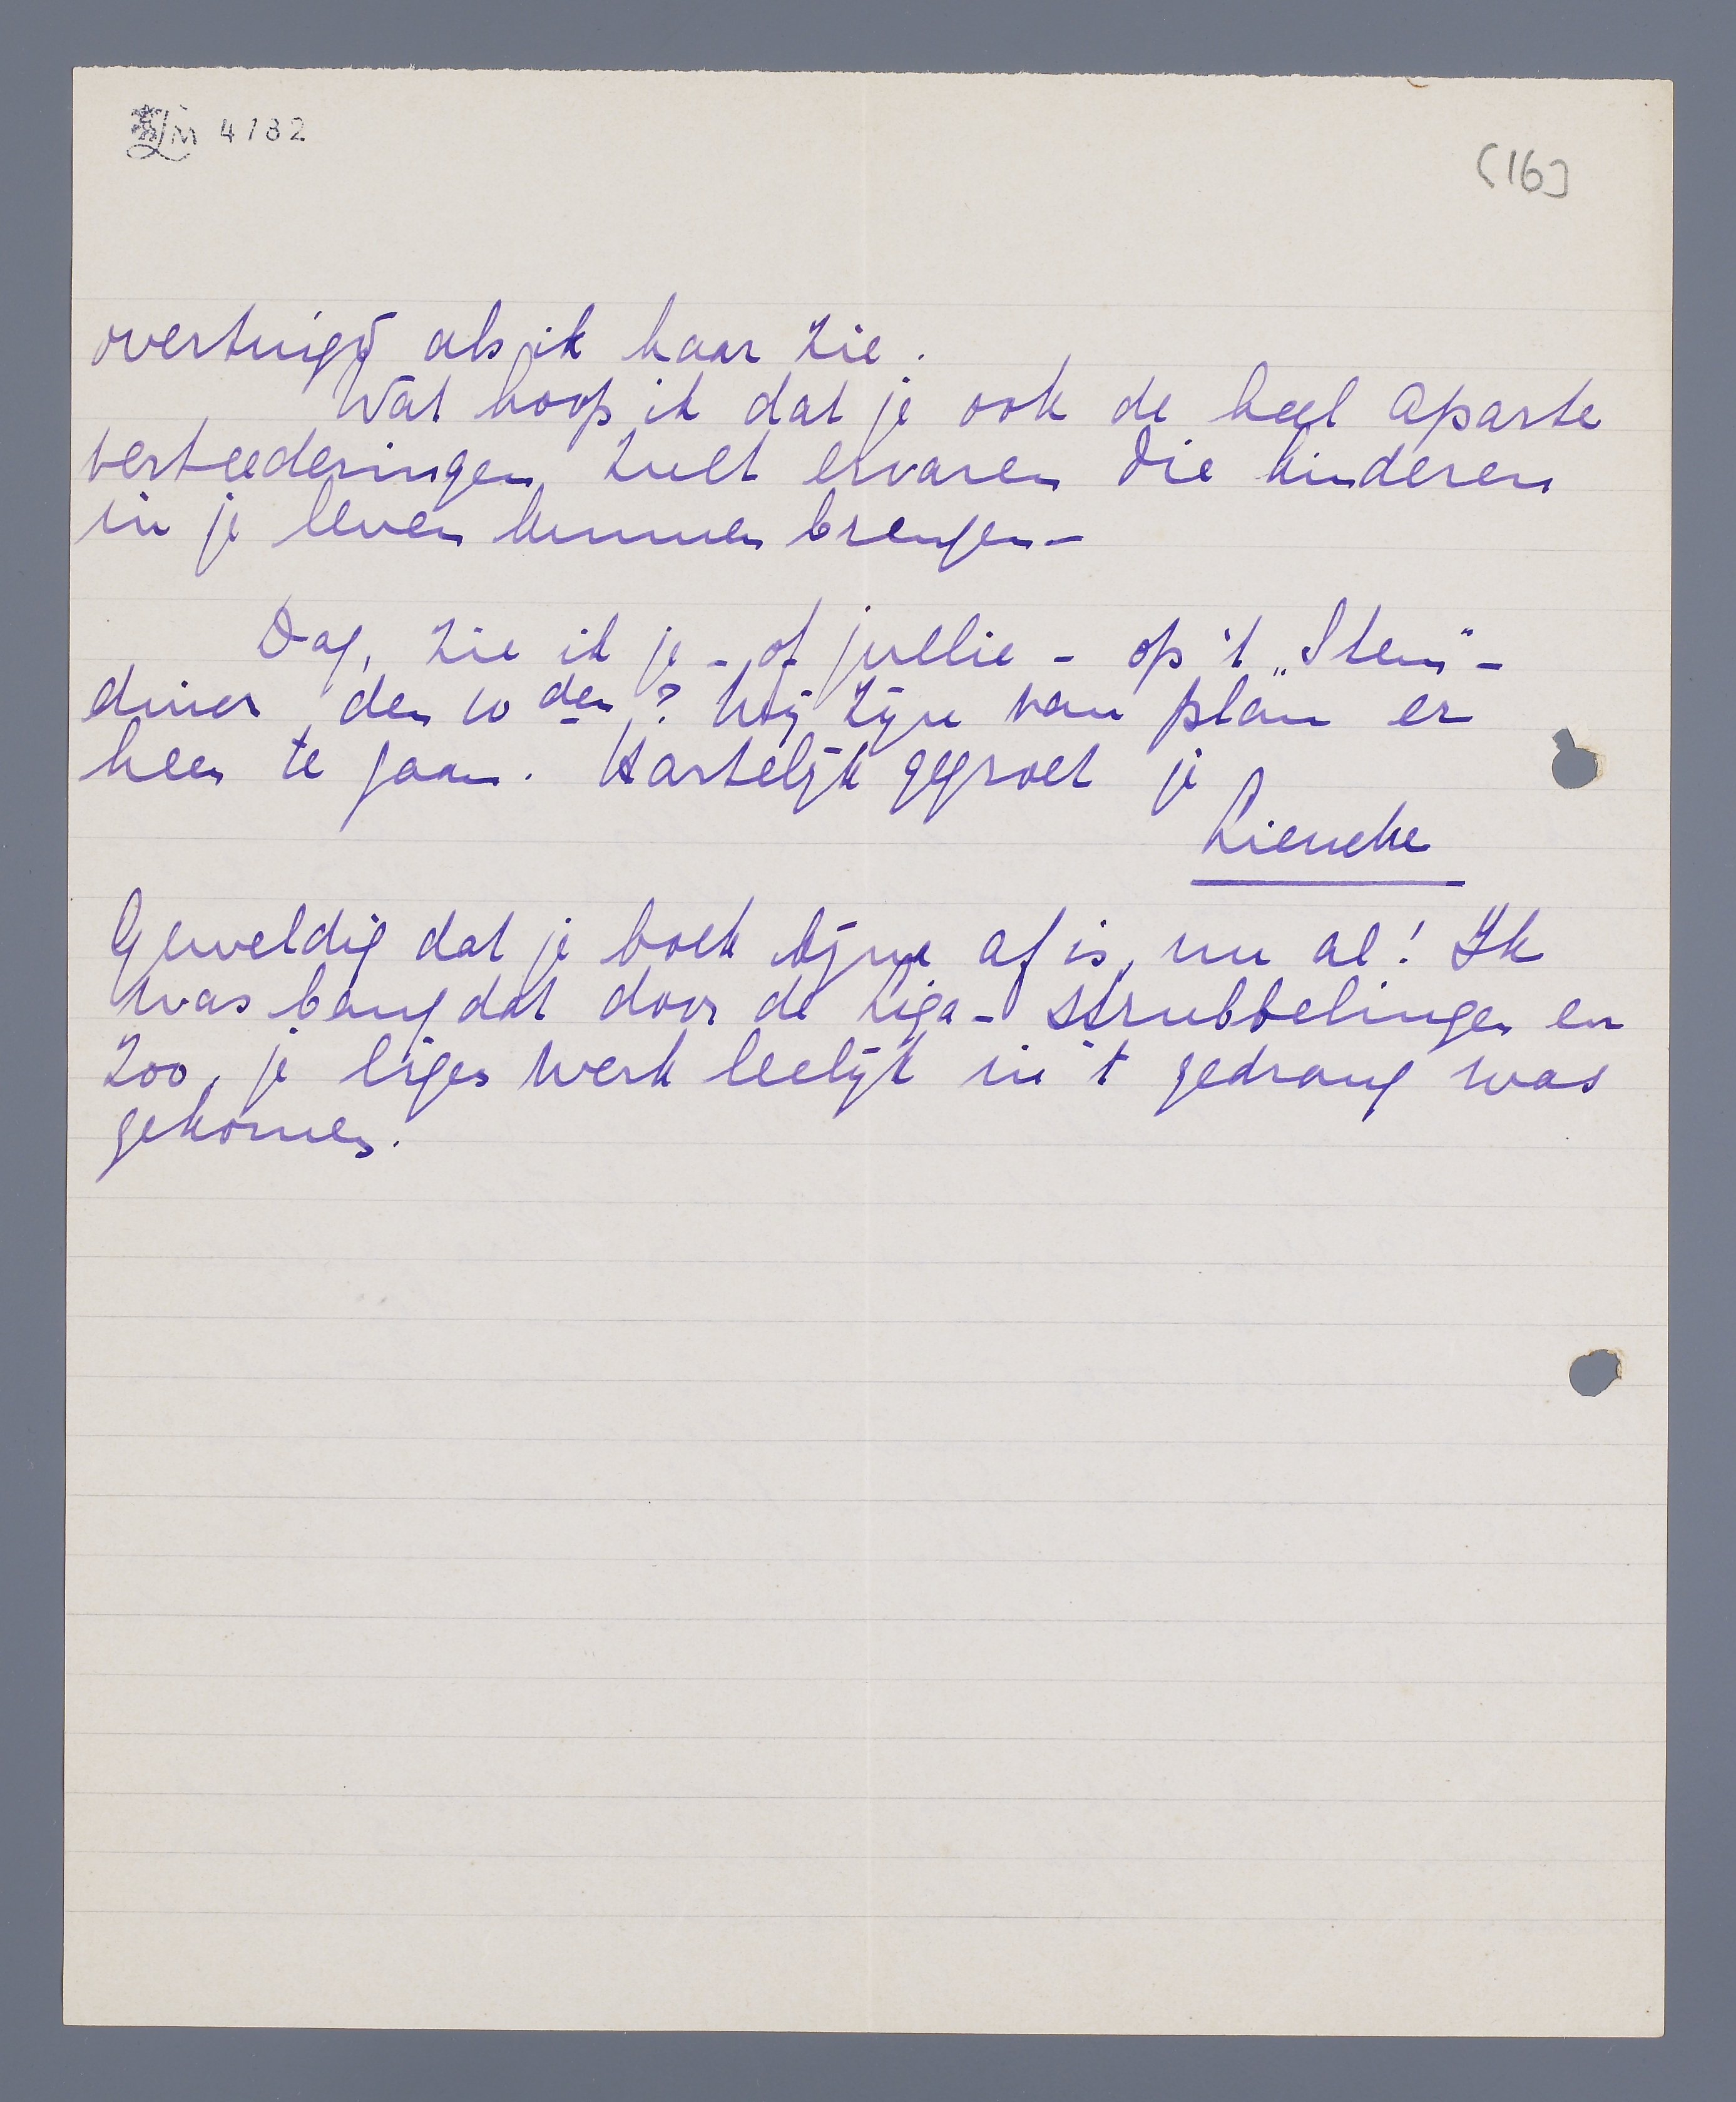 LM 4182
(16)
overtuigd als ik haar zie.
Wat hoop ik dat je ook de heel aparte
verteederingen zult ervaren die kinderen
in je leven kunnen brengen –
Dag, zie ik je – of jullie – op 't „Stem"-
diner den 10 den? Wij zijn van plan er
heen te gaan. Hartelijk gegroet je
Lieneke
Geweldig dat je boek bijna af is, nu al! Ik
was bang dat door de Liga-strubbelingen en
zoo, je eigen werk leelijk in 't gedrang was
gekomen.